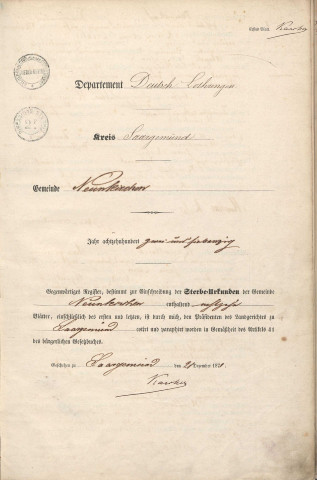 Departement Deutsch Lothringen
Kreis Saargemünd
Gemeinde Neunkirchen
Jahr achtzehnhundert zwei und siebenzig
Gegenwärtiges Register, bestimmt zur Einschreibung der Sterbe-Urkunden der Gemeinde
Neunkirchen enthaltend achtzehn
Blätter, einschließlich des ersten und letzten, ist durch mich, den Präsidenten des Landgerichtes zu
Saargemünd cotirt und paraphirt worden in Gemäßheit des Artikels 41
des bürgerlichen Gesetzbuches.
Geschehen zu Saargemünd den Dezember 1871.